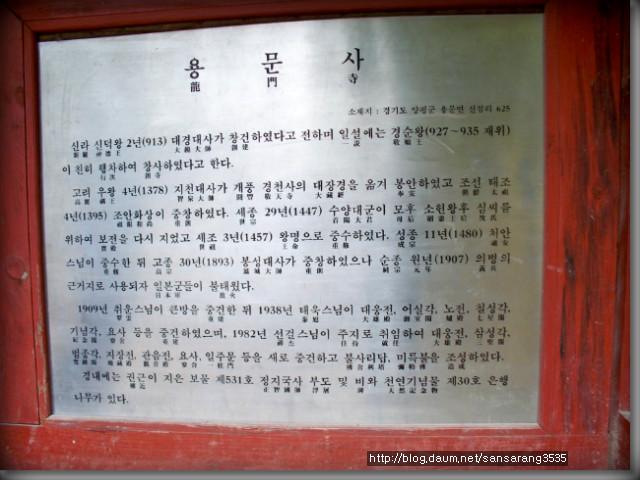 용문사
龍門寺
소재지 : 경기도 양평군 용문면 신점리 625
신라 신덕왕 2년(913) 대경대사가 창건하였다고 전하며 일설에는 경순왕(927~935 재위)
이 친히 행차하여 창사하였다고 한다.
고려 우왕 4년(1378) 지천대사가 개풍 경천사의 대장경을 옮겨 봉안하였고 조선 태조
4년(1395) 조안화상이 중창하였다. 세종 29년(1447) 수양대군이 모후 소헌왕후 심씨를
위하여 보전을 다시 지었고 세조 3년(1457) 왕명으로 중수하였다. 성종 11년(1480) 처안
스님이 중수한 뒤 고종 30년(1893) 봉성대사가 중창하였으나 순종 원년(1907) 의병의
근거지로 사용되자 일본군들이 불태웠다.
1909년 취운스님이 큰방을 중건한 뒤 1938년 태욱스님이 대웅전, 어실각, 노전, 칠성각,
기념각, 요사 등을 중건하였으며, 1982년 선걸스님이 주지로 취임하여 대웅전, 삼성각,
범종각, 지장전, 관음전, 요사, 일주문 등을 새로 중건하고 불사리탑, 미륵불을 조성하였다.
경내에는 권근이 지은 보물 제531호 정지국사 부도 및 비와 천연기념물 제30호 은행
나무가 있다.
http://blog.daum.net/sansarang3535